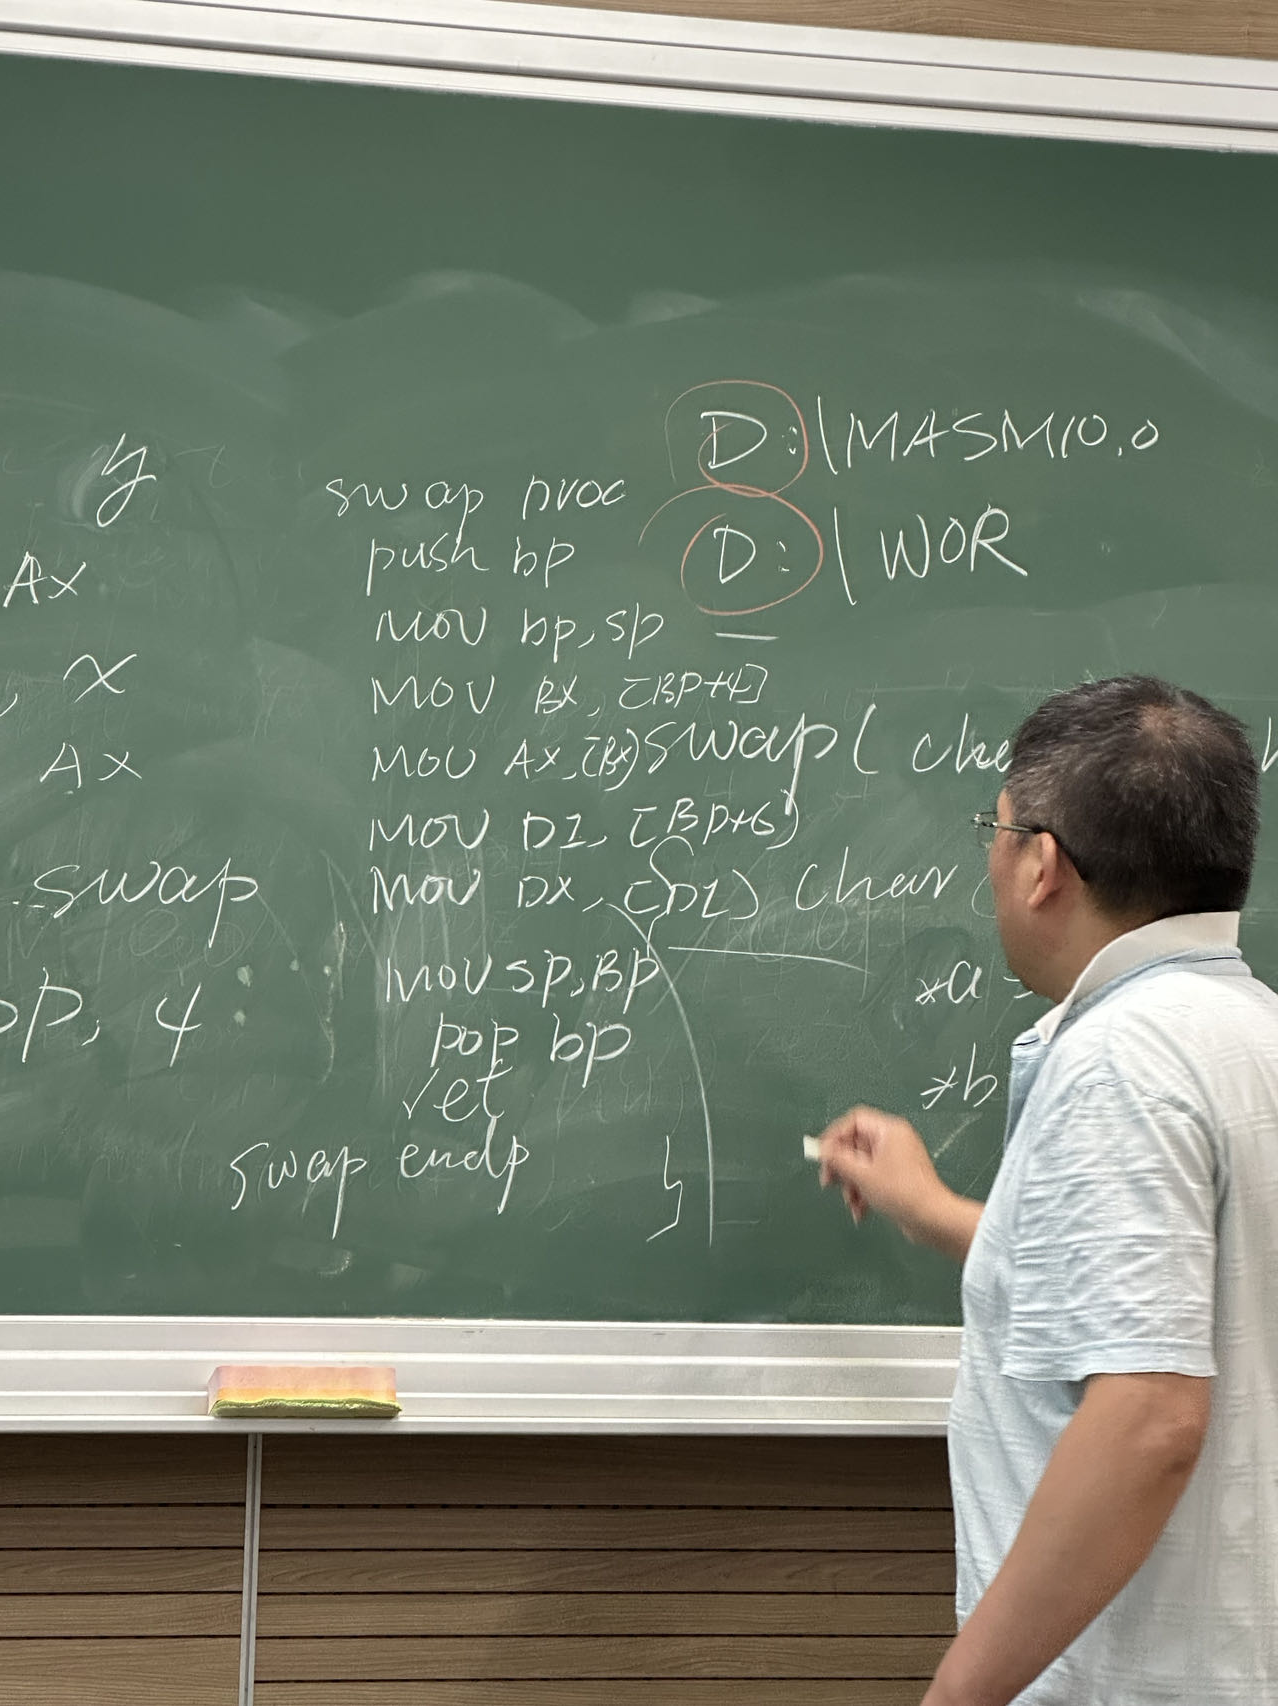 y
Ax
, x
Ax
swap
, 4
swap proc
push bp
MOV bp, sp
MOV BX, [BP+4]
MOV AX, [BX]
MOV DI, [BP+6]
MOV DX, [DI]
MOV SP, BP
pop bp
ret
swap endp
D:\MASM10.0
D:\WOR
swap(
{ char
*a =
*b
}